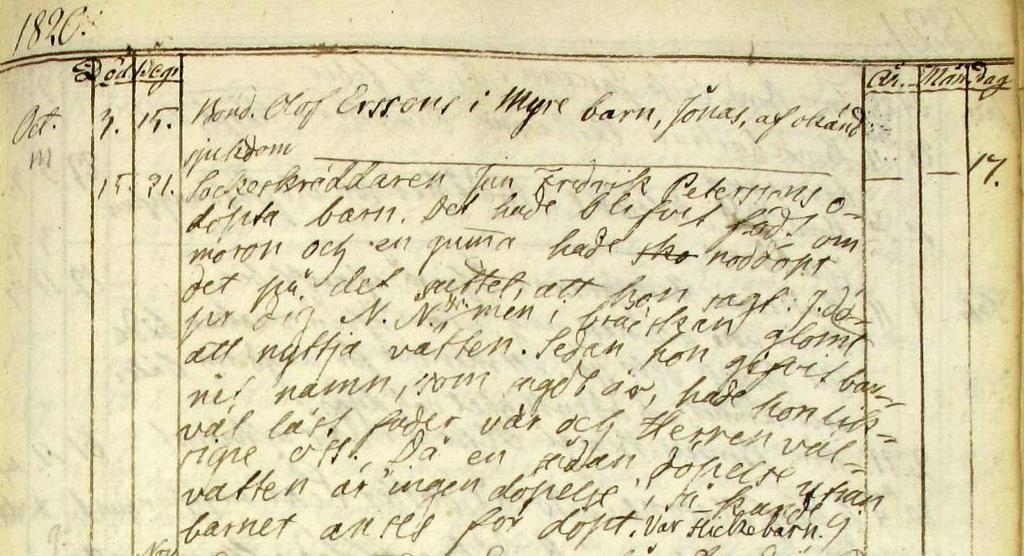 1820.
Död Begr. År. Mån. dag
Oct. 3. 15. Bond. Olof Erssons i Myre barn, Jonas, af okänd
M sjukdom — — 17.
15. 21. Sockeskräddaren Jan Fredrik Peterssons o-
döpta barn. Det hade blifvit född om
moron och en gumma hade nöddöpt
det på det sättet, att hon sagt: J. dö-
per dig N. N., men i bräskan glömt
att nyttja vatten. Sedan hon gifvit bar-
net namn, som sagdt är, hade hon lik-
väl läst fader vår och Herren väl-
signe oss. Då en sådan döpelse utan
vatten är ingen döpelse, så kande
barnet anses för döpt. Var flickebarn.
Nov.